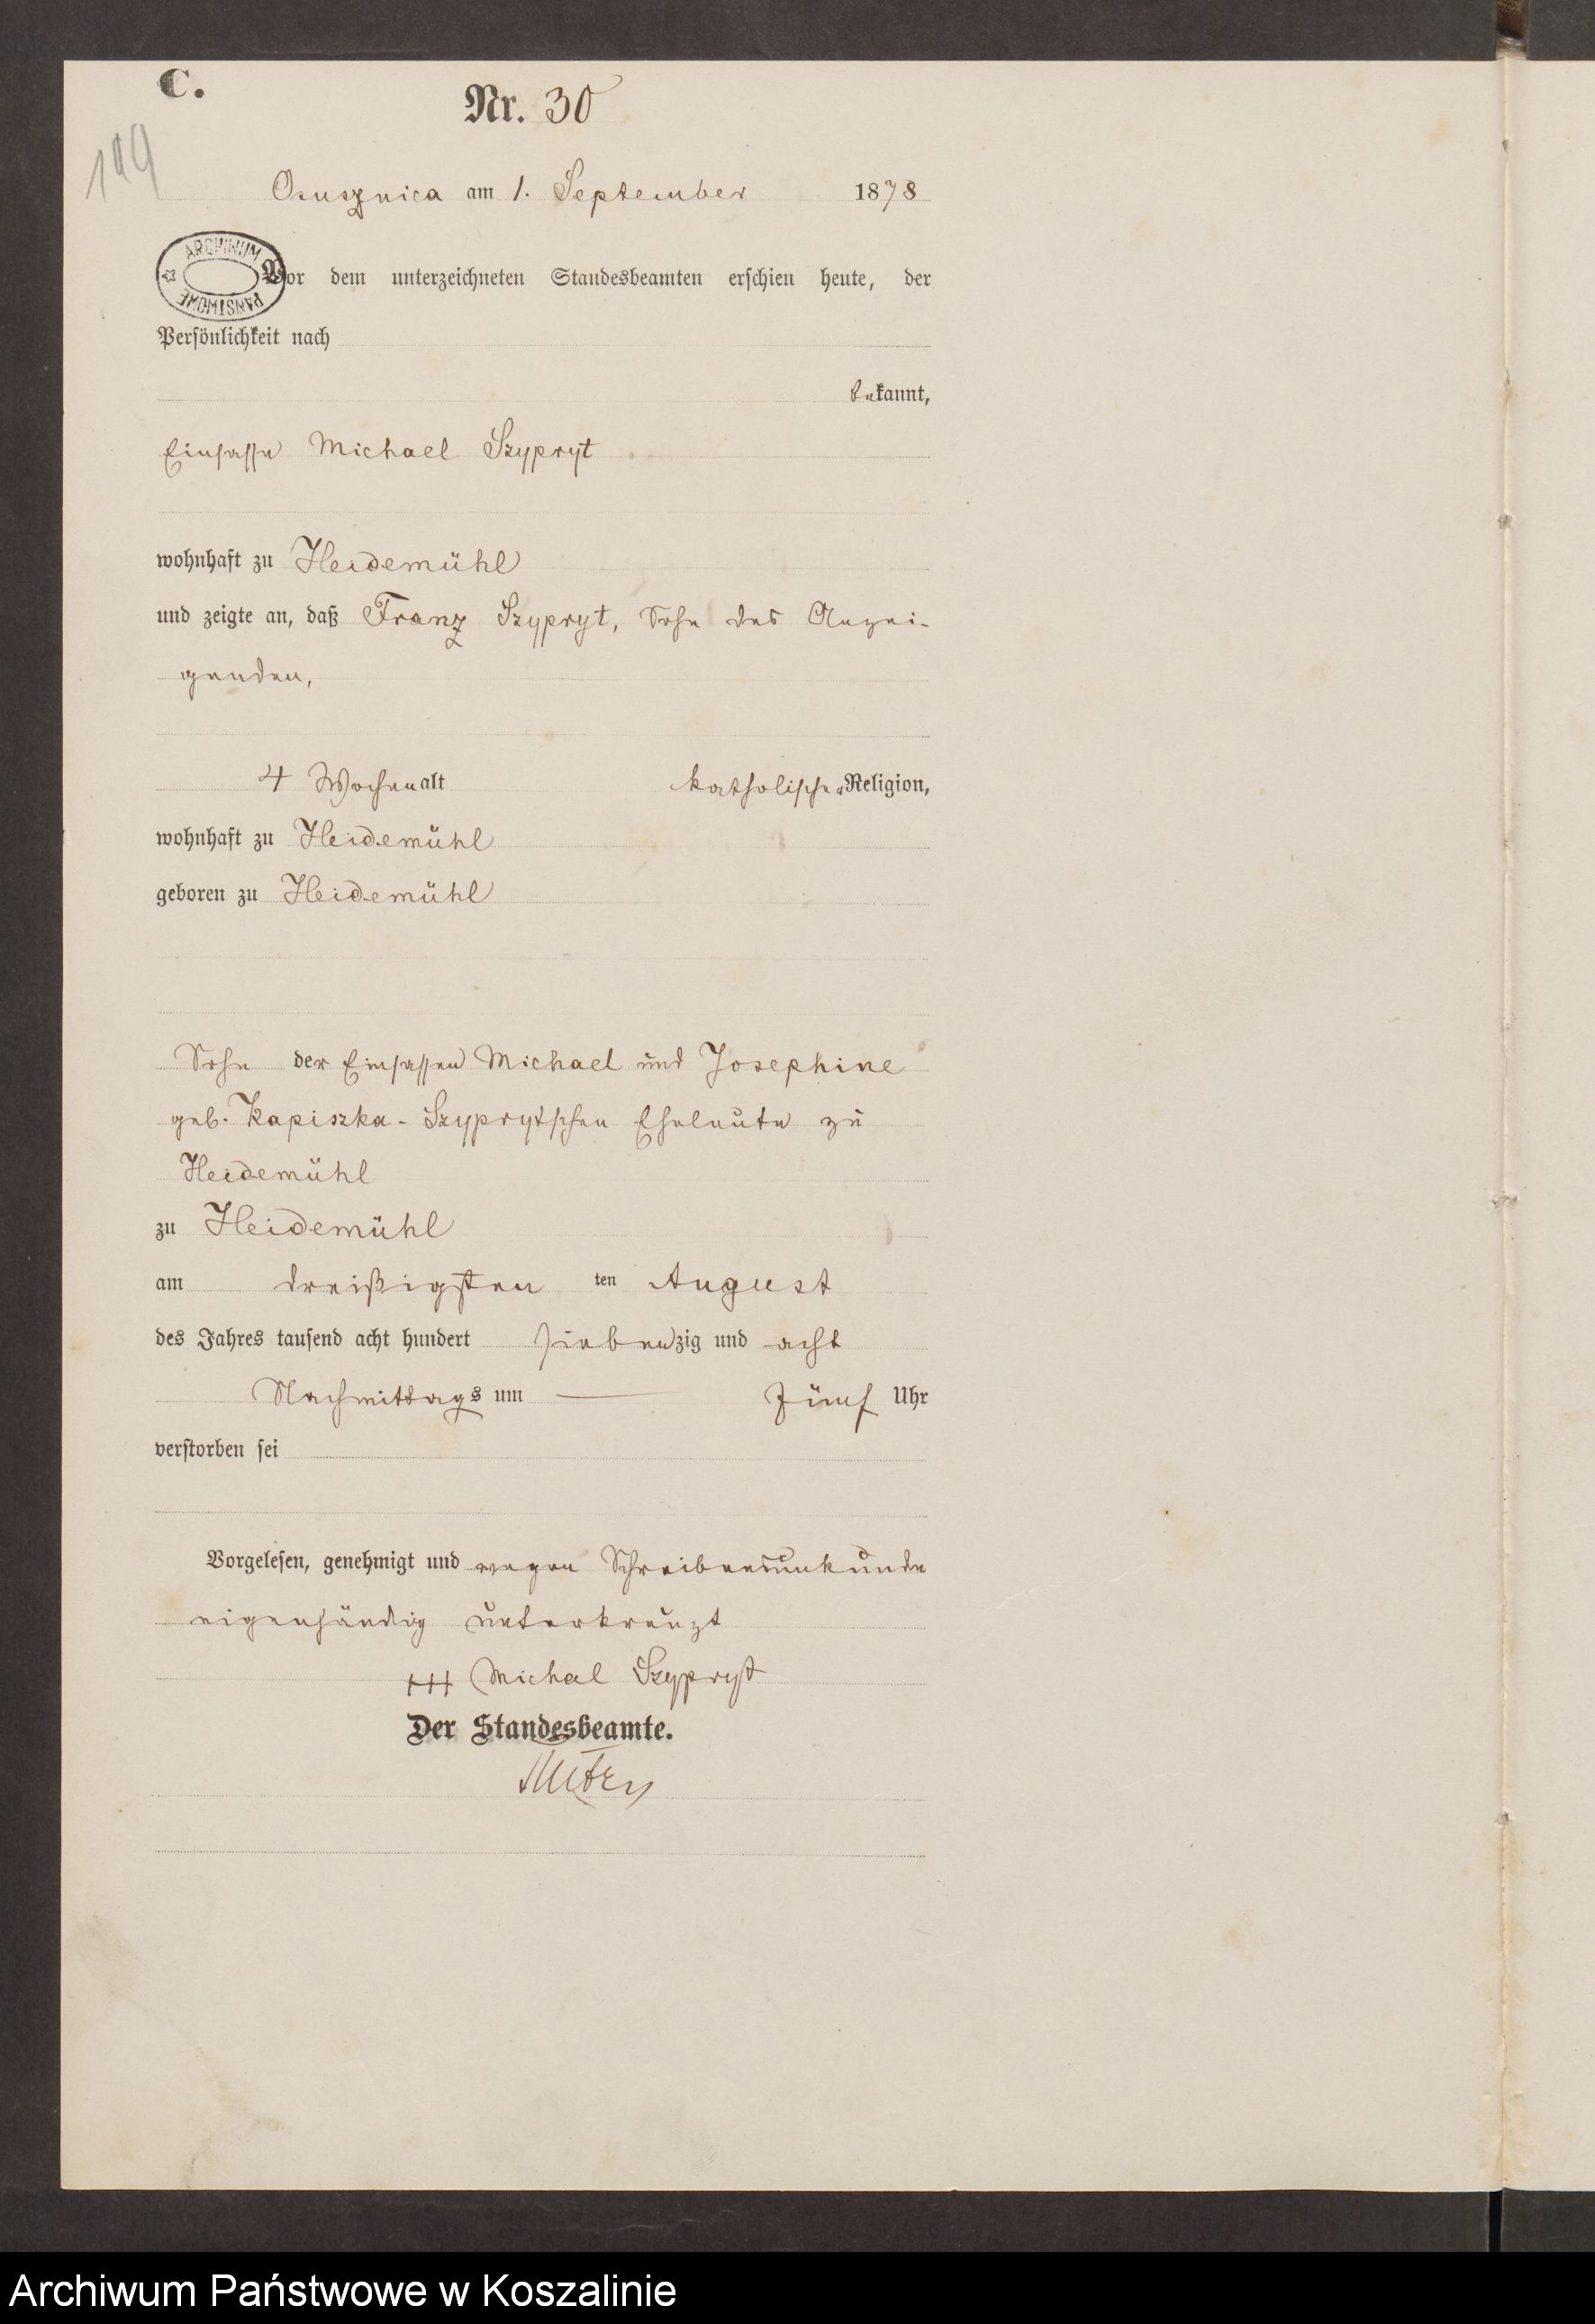 C.
Nr. 30
149
Osusznica am 1. September 1878
ARCHIWUM PAŃSTWOWE
Vor dem unterzeichneten Standesbeamten erschien heute, der
Persönlichkeit nach
bekannt,
Einsasse Michael Szypryt
wohnhaft zu Heidemühl
und zeigte an, daß Franz Szypryt, Sohn des Anzei-
genden,
4 Wochen alt katholischer Religion,
wohnhaft zu Heidemühl
geboren zu Heidemühl
Sohn der Einsassen Michael und Josephine
geb. Kapiszka-Szypryt'schen Eheleute zu
Heidemühl
zu Heidemühl
am dreißigsten ten August
des Jahres tausend acht hundert siebenzig und acht
Nachmittags um — fünf Uhr
verstorben sei
Vorgelesen, genehmigt und wegen Schreibensunkunde
eigenhändig unterkreuzt
+++ Michal Szypryt
Der Standesbeamte.
Archiwum Państwowe w Koszalinie